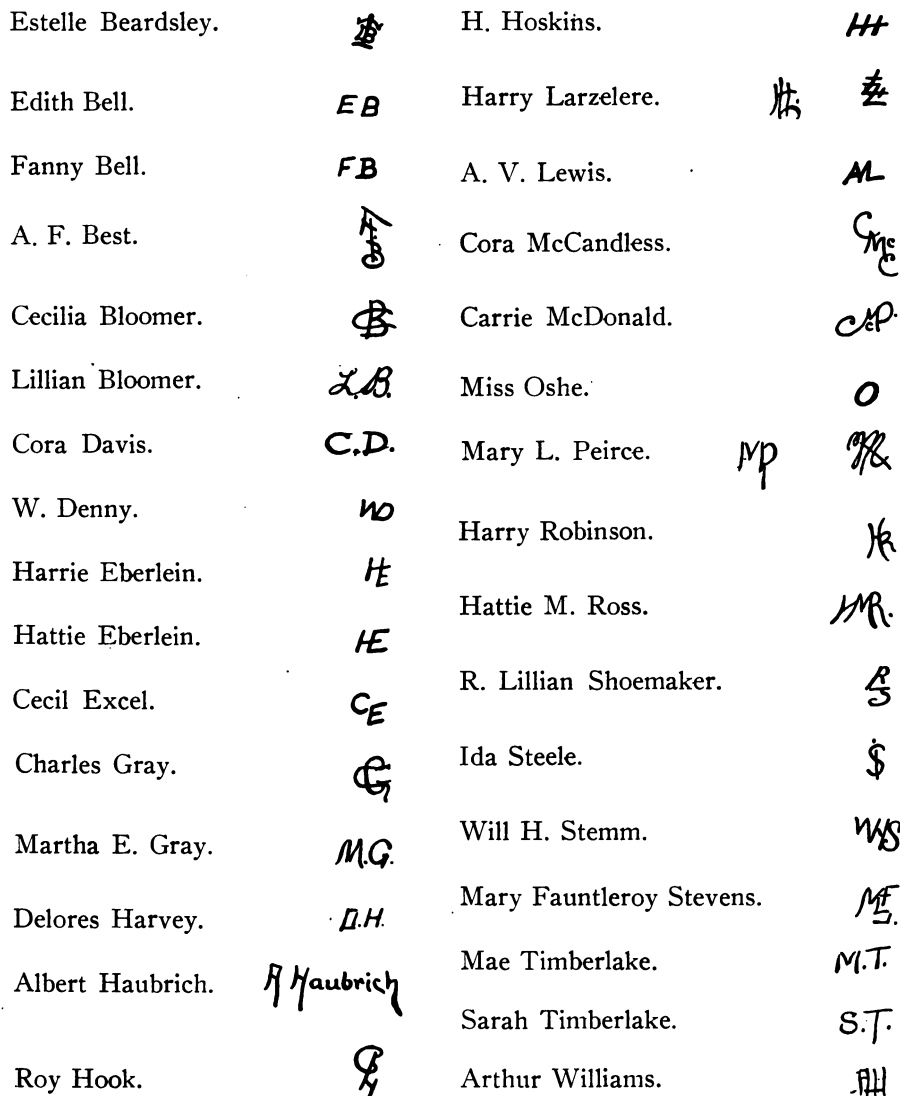 Estelle Beardsley.
Edith Bell. E B
Fanny Bell. F B
A. F. Best.
Cecilia Bloomer. CB
Lillian Bloomer. L.B.
Cora Davis. C.D.
W. Denny. WD
Harrie Eberlein. HE
Hattie Eberlein. HE
Cecil Excel. CE
Charles Gray. CG
Martha E. Gray. M.G.
Delores Harvey. D.H.
Albert Haubrich. A Haubrich
Roy Hook.
H. Hoskins. HH
Harry Larzelere.
A. V. Lewis.
Cora McCandless. C Mc C
Carrie McDonald.
Miss Oshe. O
Mary L. Peirce. MP
Harry Robinson. HR
Hattie M. Ross. HMR.
R. Lillian Shoemaker. RS
Ida Steele.
Will H. Stemm. WHS
Mary Fauntleroy Stevens. MFS.
Mae Timberlake. M.T.
Sarah Timberlake. S.T.
Arthur Williams.